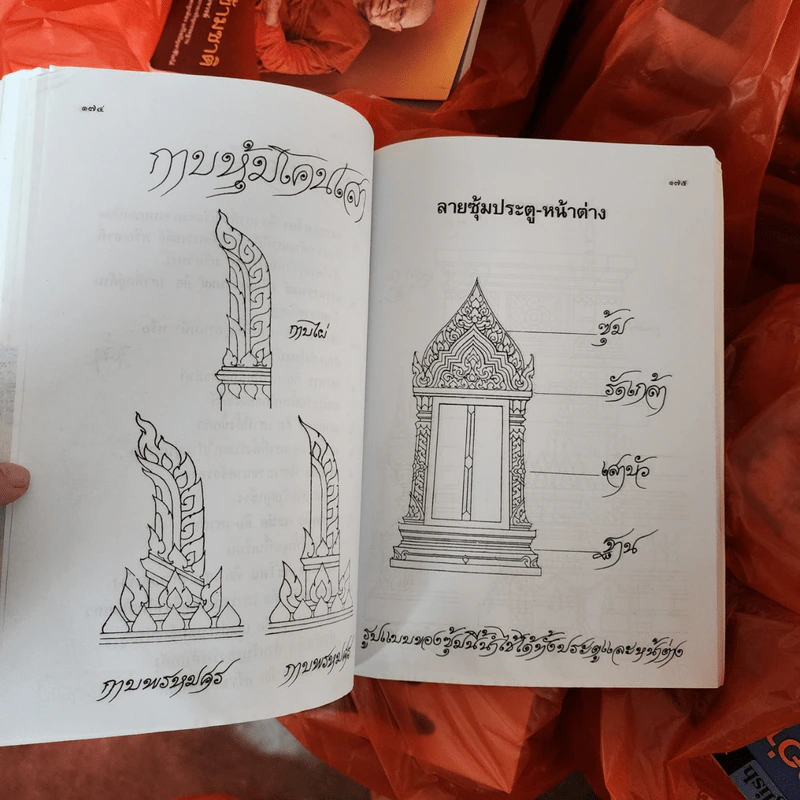 ข้ามชาติ
๑๗๔
กาบหุ้มโคนเสา
กาบไผ่
กาบพรหมศร
กาบพรหมศร
๑๗๕
ลายซุ้มประตู-หน้าต่าง
ซุ้ม
รัดเกล้า
เสาบัว
ฐาน
รูปแบบของซุ้มนี้นำใช้ได้ทั้งประตูและหน้าต่าง